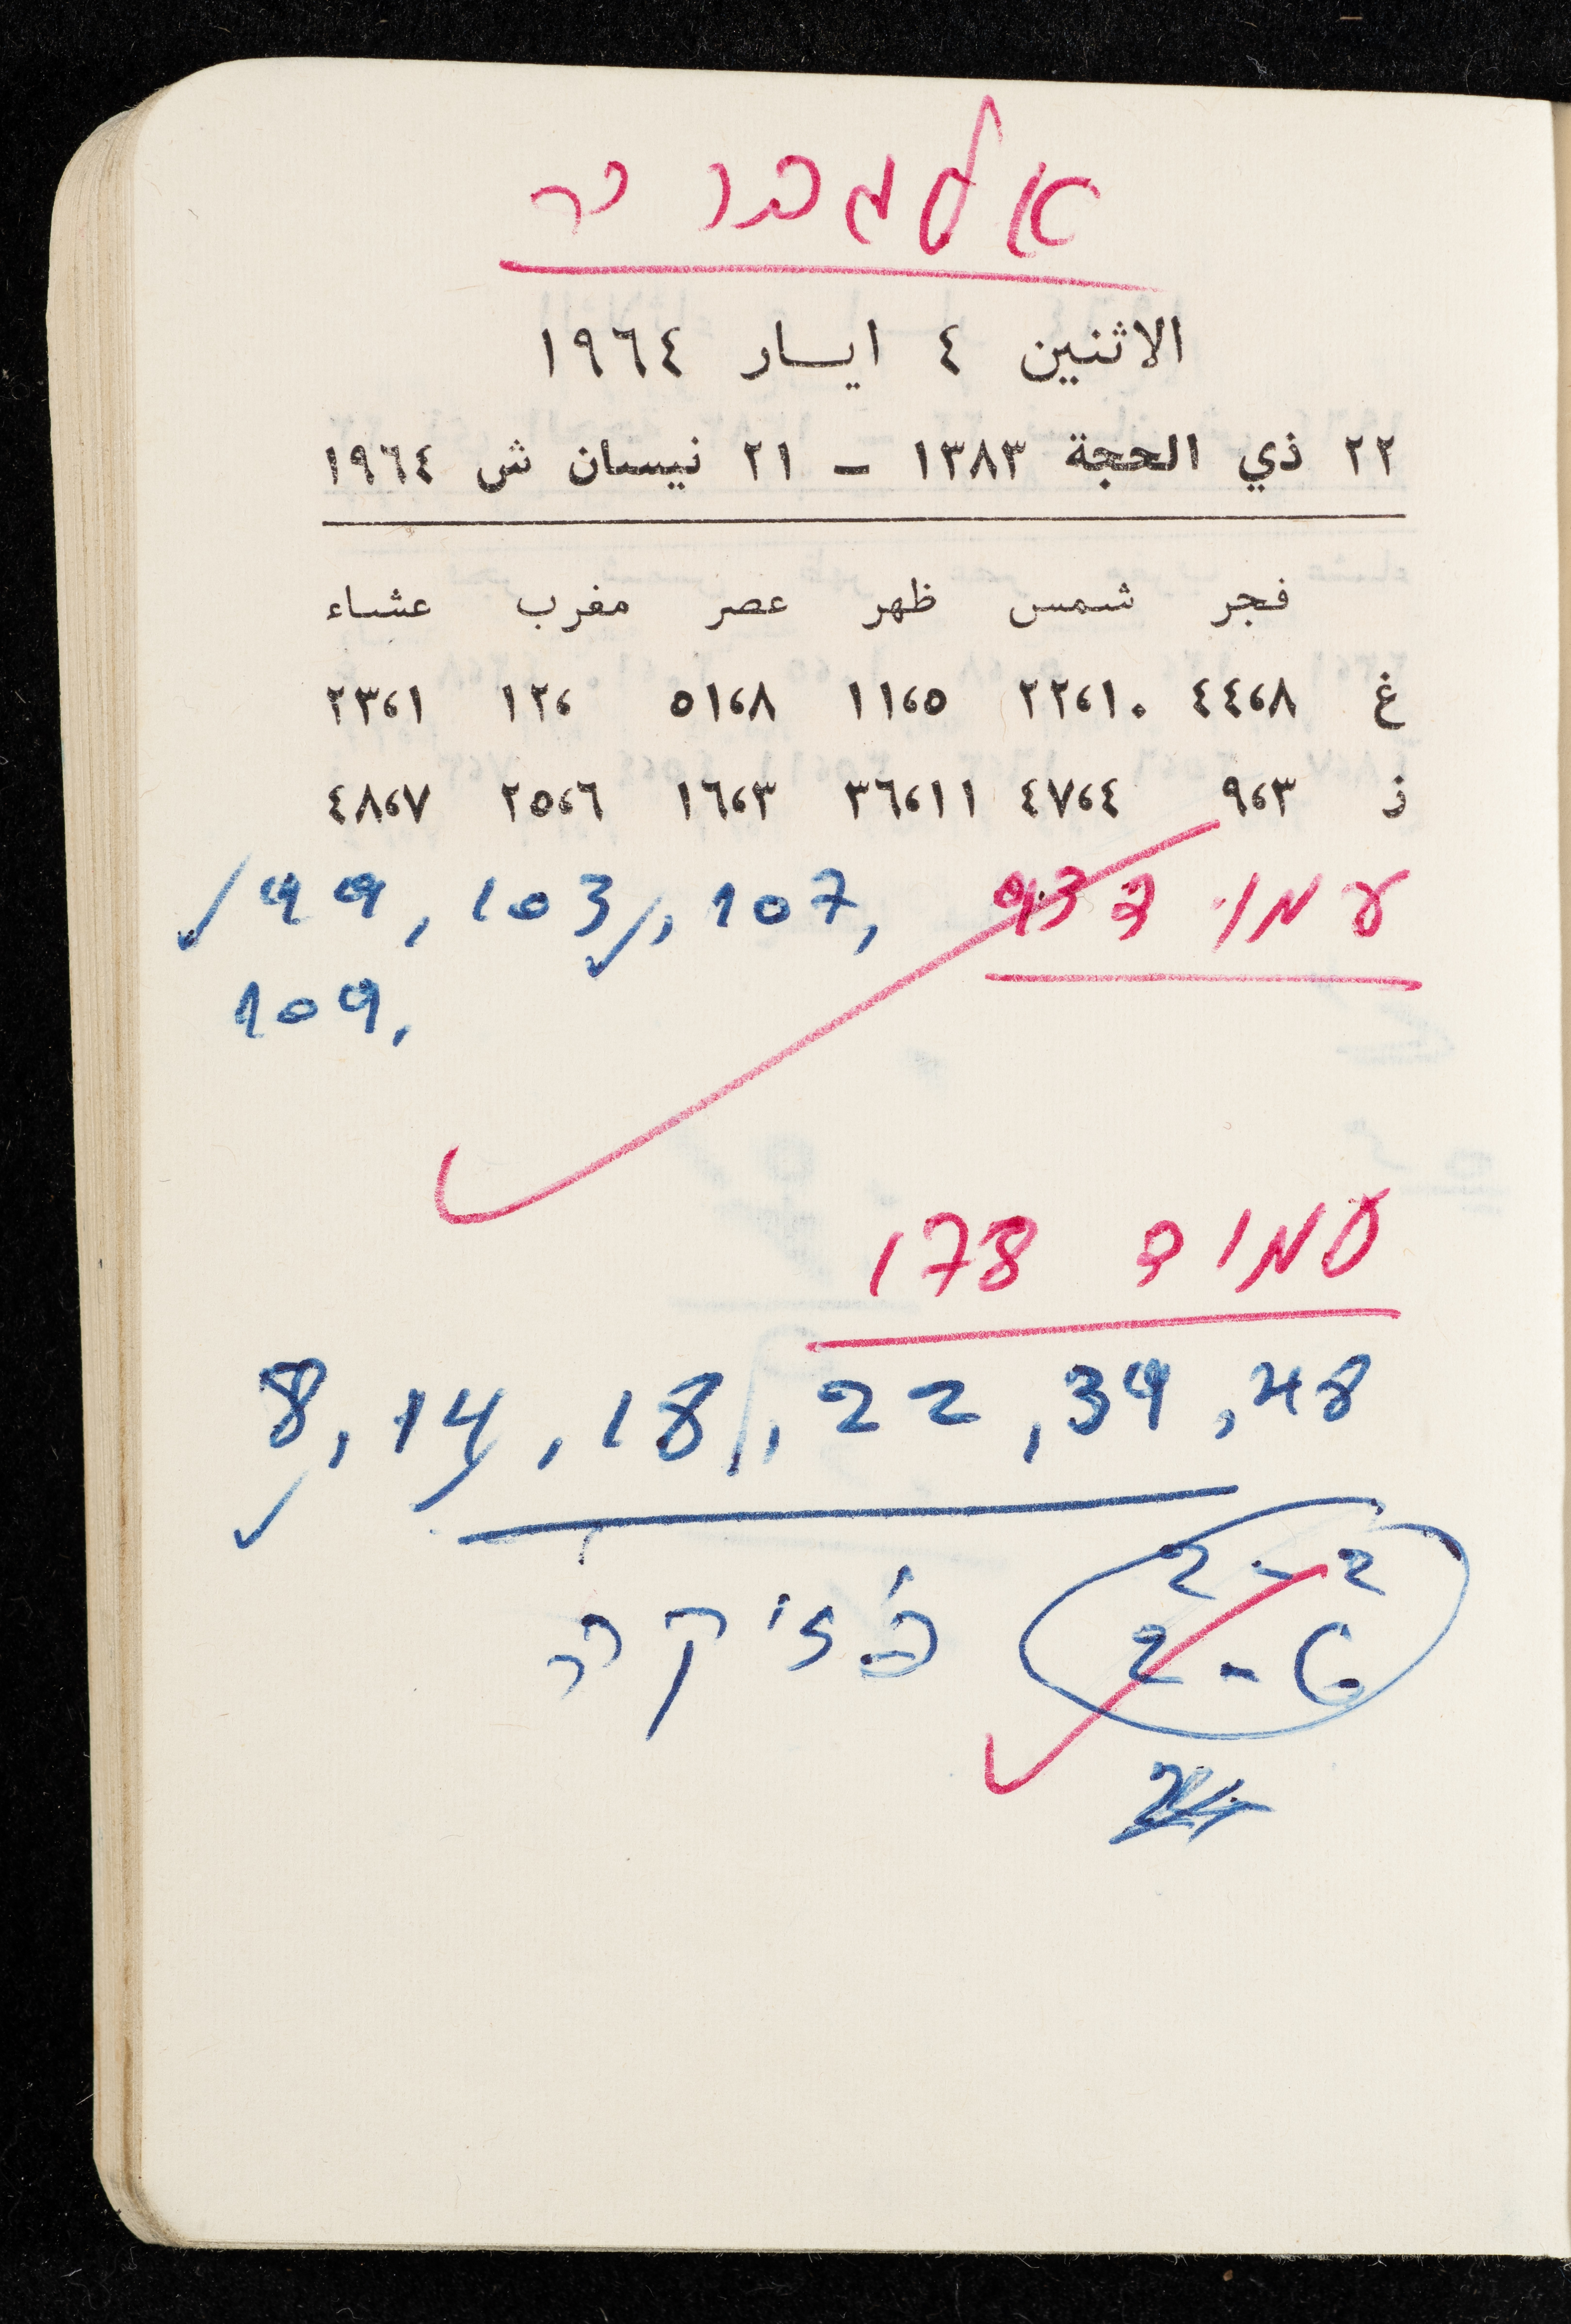 אלגברה
الاثنين ٤ ايسار ١٩٦٤
٢٢ ذي الحجة ١٣٨٣ ــ ٢١ نيسان ش ١٩٦٤
فجر شمس ظهر عصر مغرب عشاء
غ ٤٤،٨ ٢٢،١٠ ١١،٥ ٥١،٨ ١٢، ٢٣،١
ز ٩،٣ ٤٧،٤ ٣٦،١١ ١٦،٣ ٢٥،٦ ٤٨،٧
עמוד 93
99, 103, 107,
109,
עמוד 178
8, 14, 18, 22, 39, 48
פיזיקה
2-2
2-6